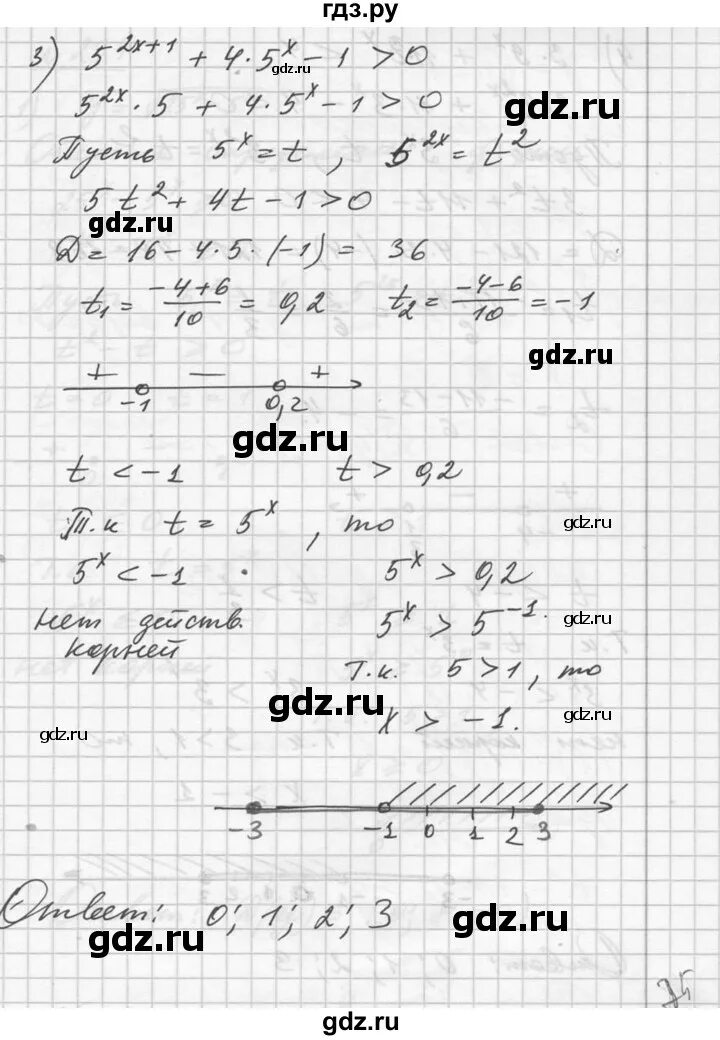 гдз.ру
3) 5^{2x+1} + 4·5^x − 1 > 0
gdz.ru
5^{2x}·5 + 4·5^x − 1 > 0
gdz.ru
Пусть 5^x = t, 5^{2x} = t^2
5t^2 + 4t − 1 > 0
gdz.ru
gdz.ru
D = 16 − 4·5·(−1) = 36
t_1 = \frac{−4+6}{10} = 0,2 t_2 = \frac{−4−6}{10} = −1
gdz.ru
+ − +
−1 0,2
gdz.ru
t < −1 t > 0,2
Т.к t = 5^x, то
gdz.ru
5^x < −1 5^x > 0,2
нет действ. 5^x > 5^{−1}.
gdz.ru
корней
Т.к. 5 > 1, то
x > −1.
gdz.ru
gdz.ru
−3 −1 0 1 2 3
Ответ: 0; 1; 2; 3
gdz.ru
gdz.ru
gdz.ru